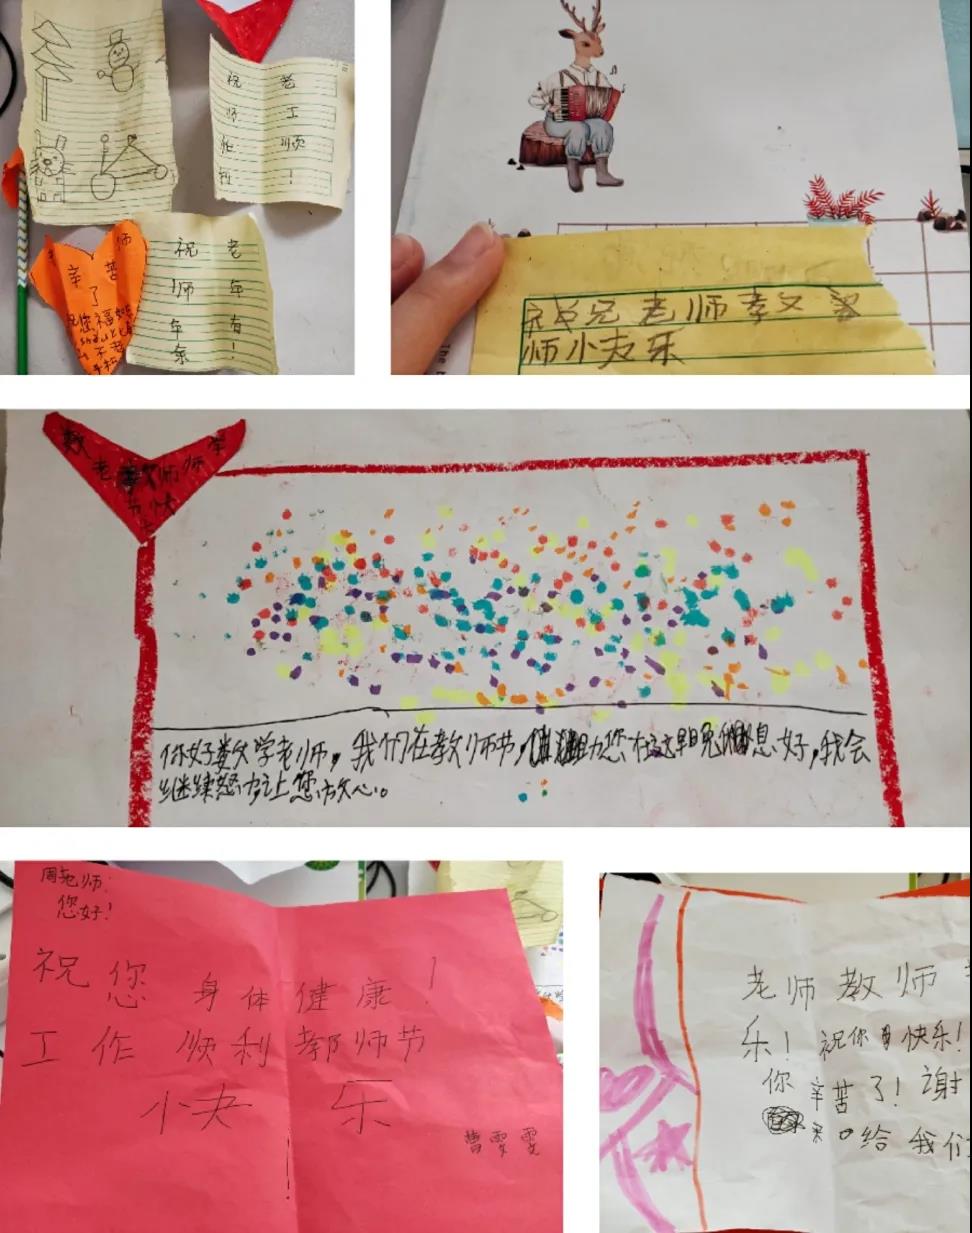 祝老
师工
作顺
利！
师
辛苦
了
祝您福如东
不老
祝老
师年
年有
余！
祝老师孝文
师小夬乐
老 师
节快
你好数学老师，我们在教师节，力您在这早晚息好，我会
继续努力让您放心。
周老师：
您好！
祝您身体健康！
工作顺利教师节
快乐
曹雯雯
老师教师
乐！祝你快乐！
你辛苦了！谢
给我们